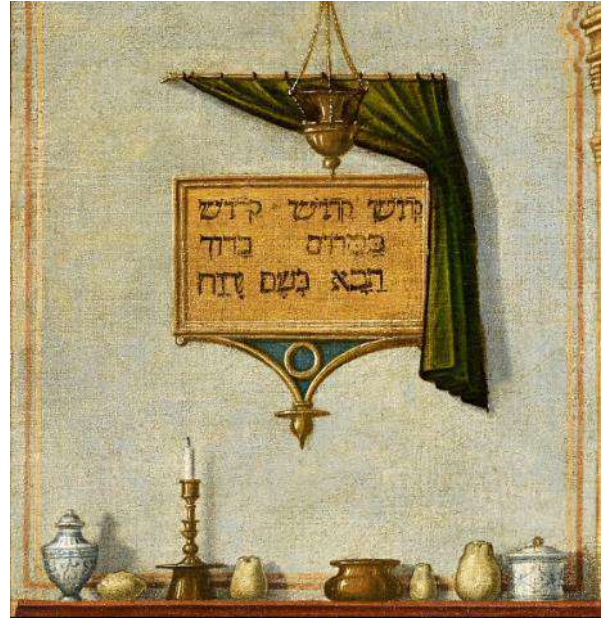 קדוש קדוש קדוש
במרוים ברוך
הבא בשם יהוה